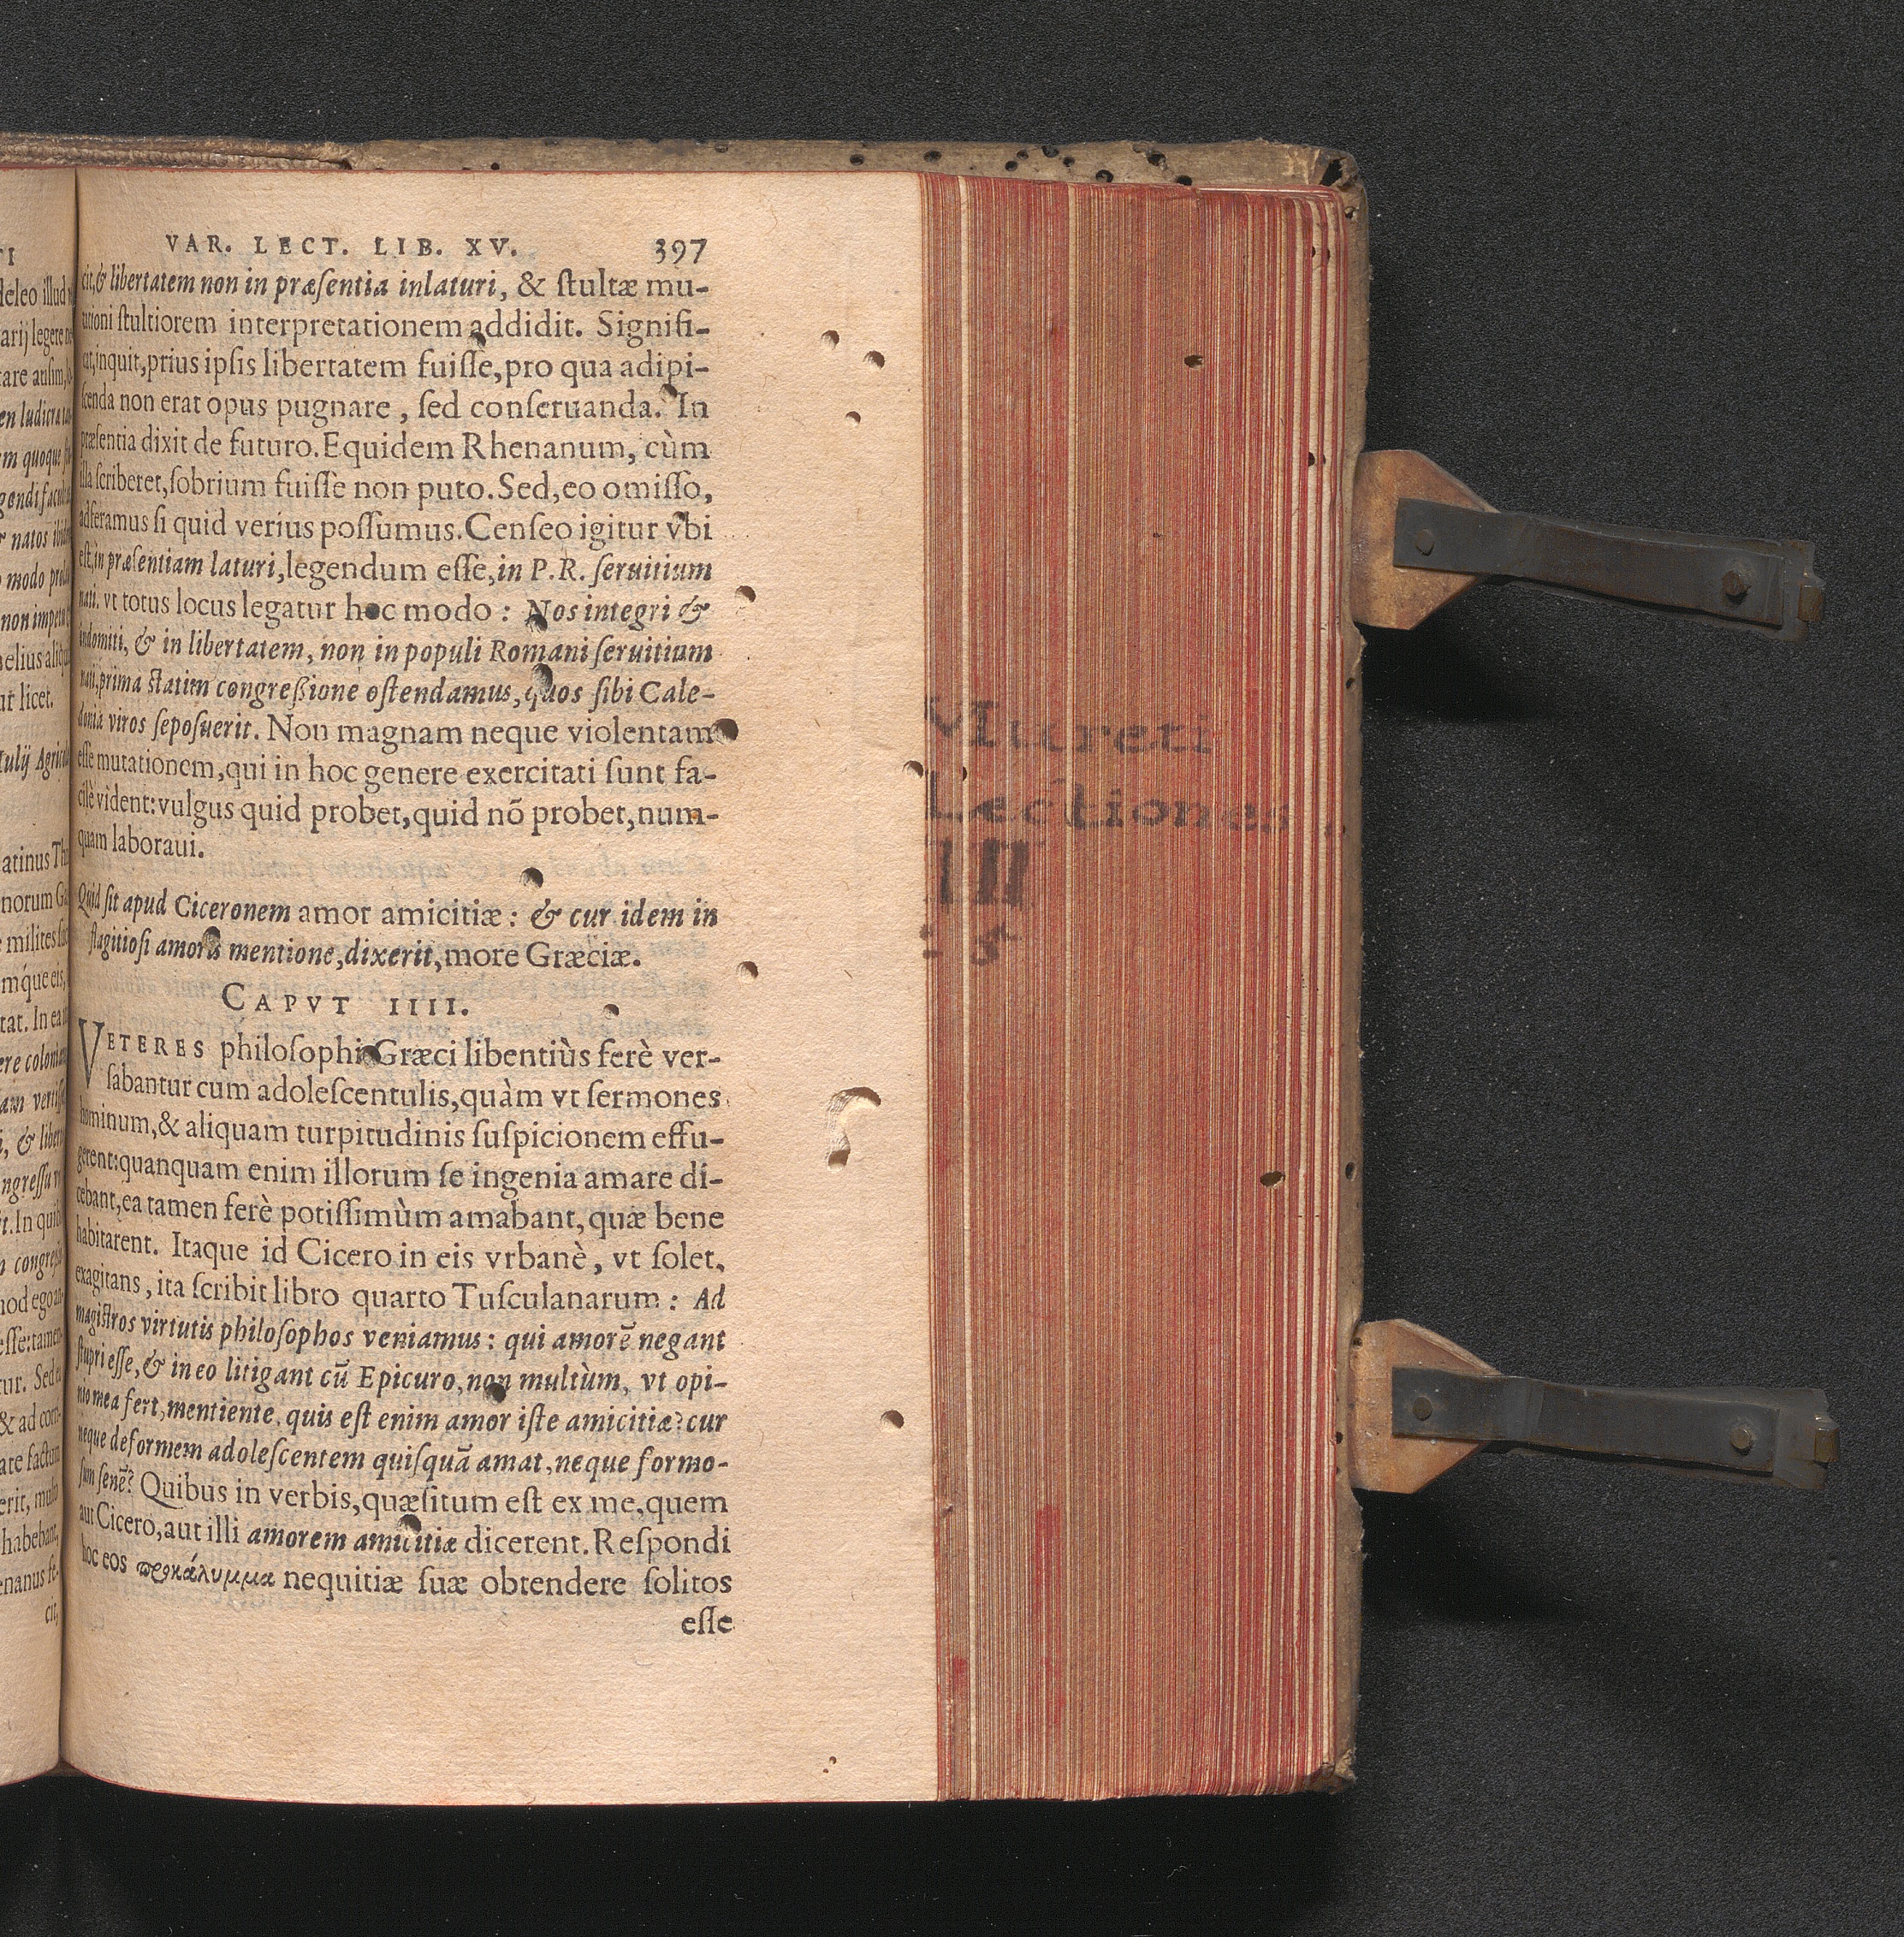 VAR. LECT. LIB. XV. 397
cit, & libertatem non in præſentia inlaturi, & ſtultæ mu-
tationi ſtultiorem interpretationem addidit. Signifi-
cat, inquit, prius ipſis libertatem fuiſſe, pro qua adipi-
ſcenda non erat opus pugnare, ſed conſeruanda. In
præſentia dixit de futuro. Equidem Rhenanum, cùm
illa ſcriberet, ſobrium fuiſſe non puto. Sed, eo omiſſo,
adferamus ſi quid verius poſſumus. Cenſeo igitur vbi
eſt, in præſentiam laturi, legendum eſſe, in P. R. ſeruitium
nati. vt totus locus legatur hoc modo: Nos integri &
indomiti, & in libertatem, non in populi Romani ſeruitium
nati, prima ſtatim congreßione oſtendamus, quos ſibi Cale-
donia viros ſepoſuerit. Non magnam neque violentam
eſſe mutationem, qui in hoc genere exercitati ſunt fa-
cilè vident: vulgus quid probet, quid nō probet, num-
quam laboraui.
Quid ſit apud Ciceronem amor amicitiæ: & cur idem in
flagitioſi amoris mentione, dixerit, more Græciæ.
CAPVT IIII.
VETERES philoſophi Græci libentiùs ferè ver-
ſabantur cum adoleſcentulis, quàm vt ſermones
hominum, & aliquam turpitudinis ſuſpicionem effu-
gerent: quanquam enim illorum ſe ingenia amare di-
cebant, ea tamen ferè potiſſimùm amabant, quæ bene
habitarent. Itaque id Cicero in eis vrbanè, vt ſolet,
exagitans, ita ſcribit libro quarto Tuſculanarum: Ad
magiſtros virtutis philoſophos veniamus: qui amorē negant
ſtupri eſſe, & in eo litigant cū Epicuro, non multùm, vt opi-
nio mea fert, mentiente. quis eſt enim amor iſte amicitiæ? cur
neque deformem adoleſcentem quiſquā amat, neque formo-
ſum ſenē? Quibus in verbis, quæſitum eſt ex me, quem
aut Cicero, aut illi amorem amicitiæ dicerent. Reſpondi
hoc eos προκάλυμμα nequitiæ ſuæ obtendere ſolitos
eſſe
Mureti
Lectiones
III
: 5